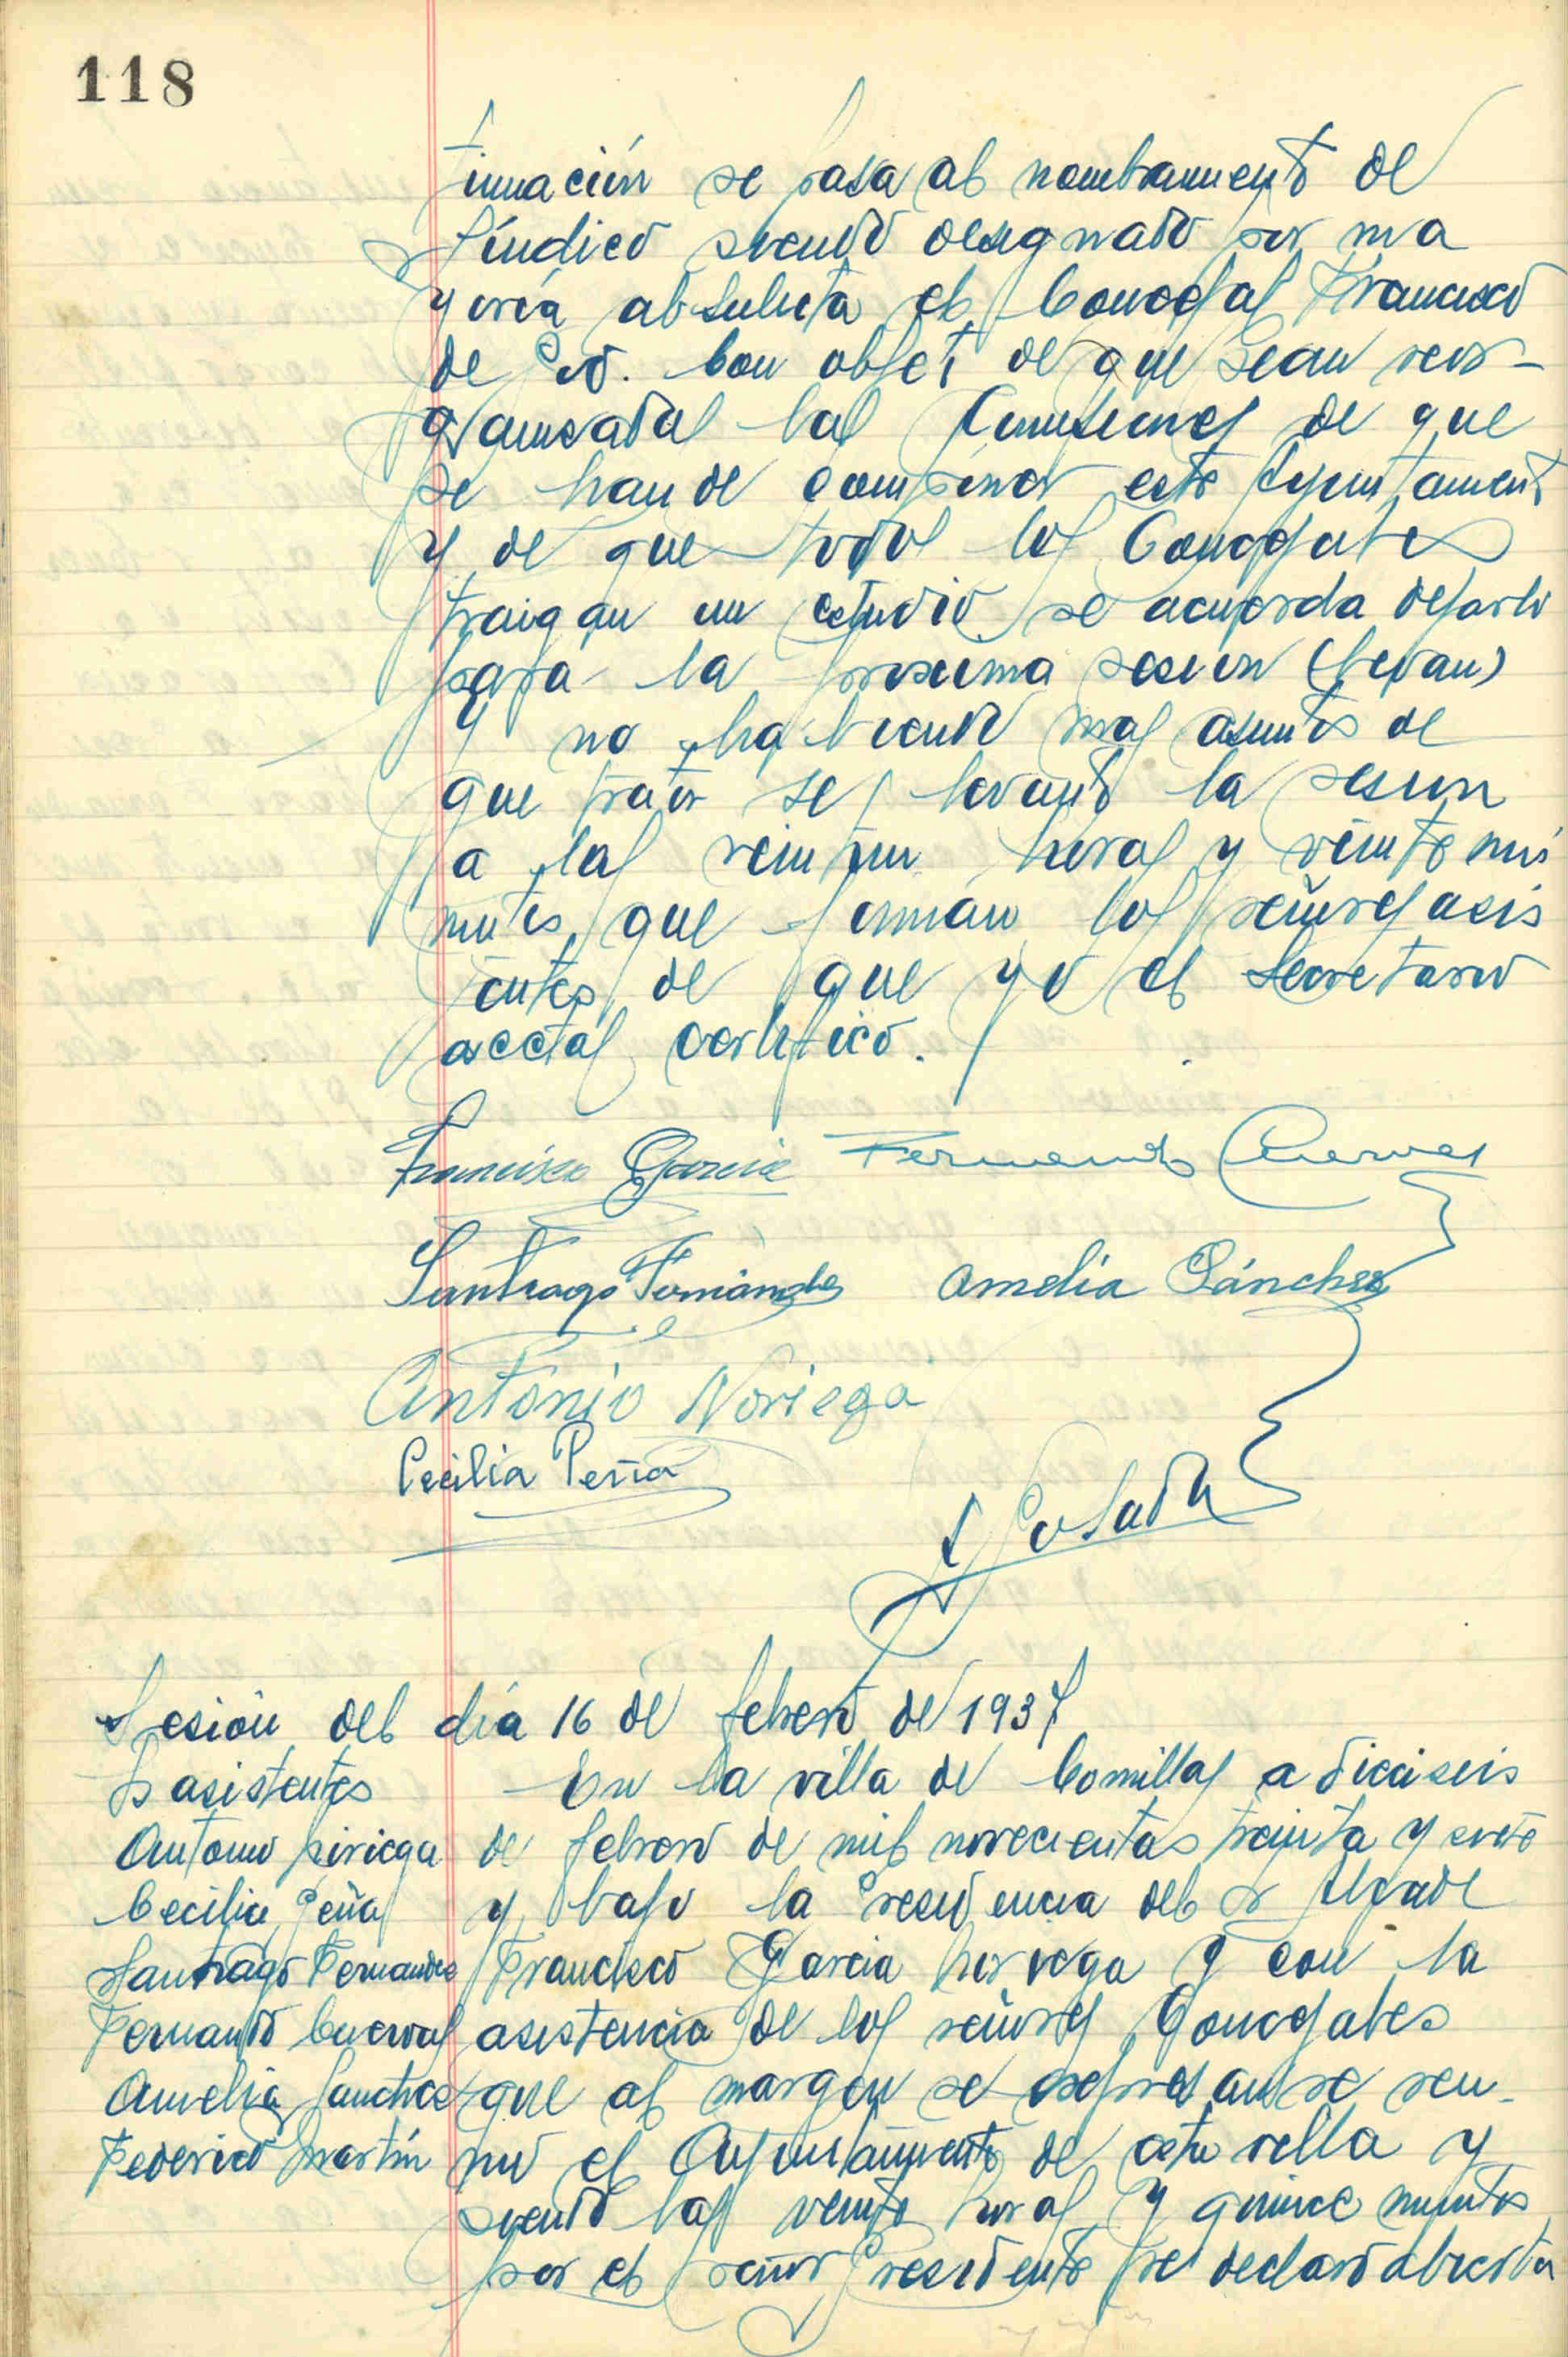 118
tinuación se pasa al nombramiento de
Síndico siendo designado por ma
yoría absoluta el Concejal Francisco
de Cos. Con objeto de que sean reor-
ganizadas las Comisiones de que
se han de componer este Ayuntamiento
y de que todos los Concejales
traigan un estudio se acuerda dejarlo
para la proxima sesion
Y no habiendo mas asuntos de
que tratar se levantó la sesion
a las veintiun horas y veinte mi
nutos, que firman los señores asis
tentes de que yo el Secretario
acctal certifico.
Francisco Garcia Fernando Cuevas
Santiago Fernández Amelia Sánchez
Antonio Noriega
Cecilia Peña
Posada
Sesión del día 16 de febrero de 1937
Srs asistentes
Antonio Noriega
Cecilia Peña
Santiago Fernandez
Fernando Cuevas
Amelia Sanchez
Federico Martín
En la villa de Comillas a dieciseis
de febrero de mil novecientos treinta y siete
y bajo la Presidencia del Sr Alcalde
Francisco Garcia Noriega y con la
asistencia de los señores Concejales
que al margen se expresan se reu-
nió el Ayuntamiento de esta villa y
siendo las veinte horas y quince minutos
por el señor Presidente se declaró abierta